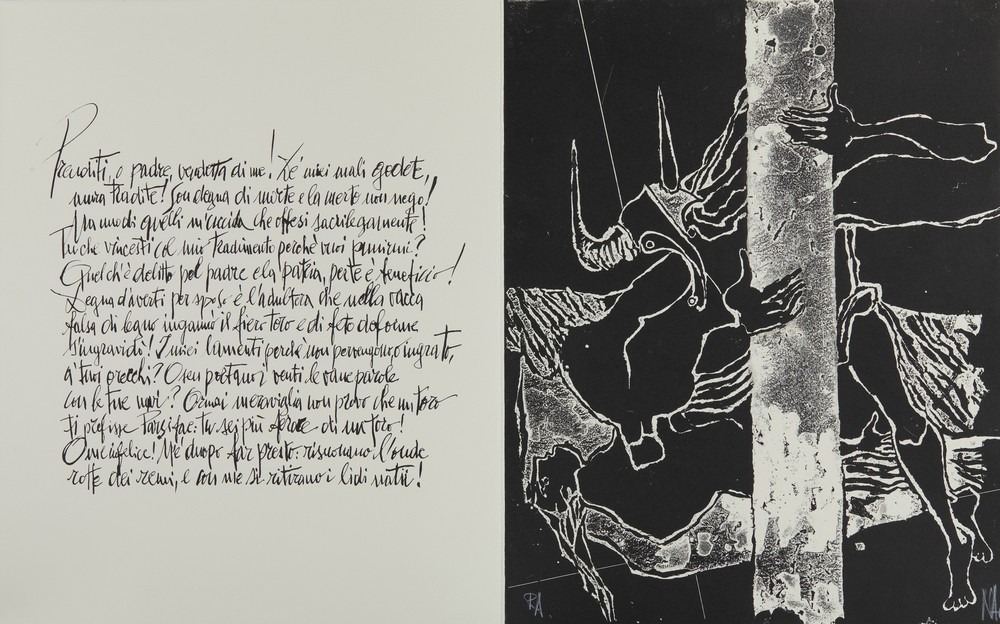 Prenditi, o padre, vendetta di me! De' miei mali godete,
mura tradite! Son degna di morte e la morte non nego!
Un di quelli m'uccida che offesi sacrilegamente!
Tu che vincesti col mio tradimento perchè vuoi punirmi?
Quel ch'è delitto pel padre e la patria, per te è beneficio!
Degna d'averti per sposo è l'adultera che nella vacca
falsa di legno ingannò il fiero toro e di feto deforme
s'ingravidò! I miei lamenti perchè non pervengono, ingrato,
a' tuoi orecchi? O sen portano i venti le vane parole
con le tue navi? Ormai meraviglia non provo che un toro
ti prefisse Parsifae: tu sei più feroce di un toro!
O me infelice! M'è duopo far presto: risuonano l'onde
rotte dei remi, e con me si ritirano i lidi natii!
PA
NA